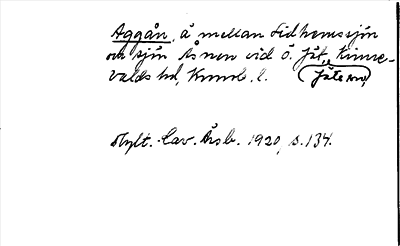 Aggån, å mellan Lidhemssjön
och sjön Åsnen vid Ö. Jät, Kinne-
valds hd, Kronob. l. (Jäts sn)
Hylt.-Cav. Årsb. 1920, s. 134.